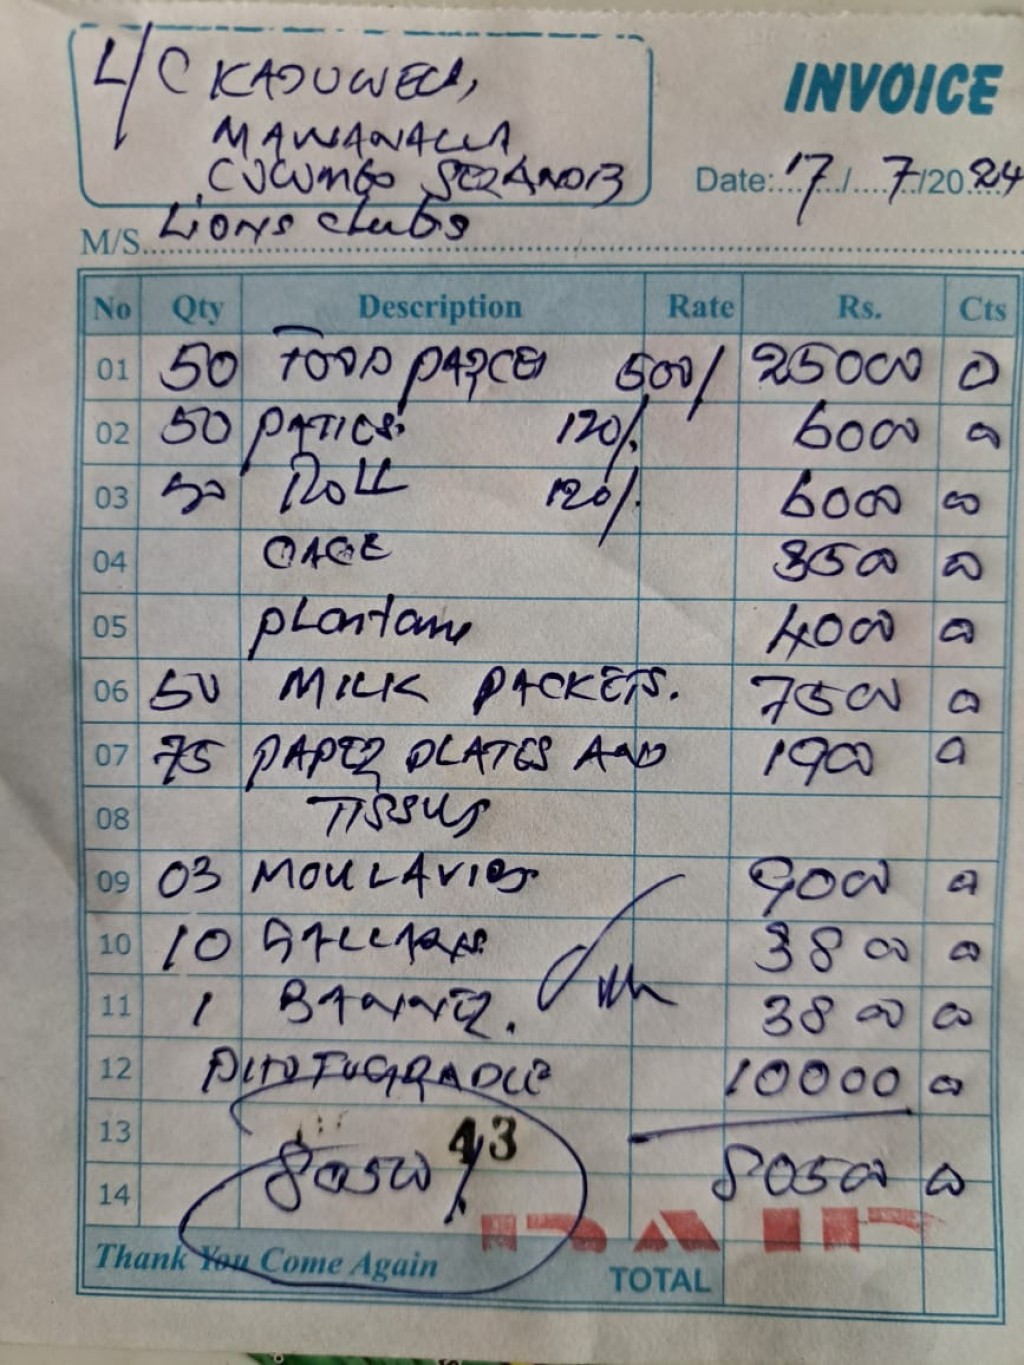 L/C KADUWELA,
MAWANALLA
COLOMBO SERANDIB
INVOICE
Date: 17/7/2024
M/S. Lions clubs
No Qty Description Rate Rs. Cts
01 50 FOOD PARCEL 500/ 25000 00
02 50 PATIES 120/. 6000 00
03 50 ROLL 120/. 6000 00
04 CAGE 3500 00
05 plantane 4000 00
06 50 MILK PACKETS. 7500 00
07 75 PAPER PLATES AND 1900 00
08 TISSUS
09 03 MOULAVIES 9000 00
10 10 3800 00
11 1 BANNER. 3800 00
12 10000 00
13 43
14 80500/. 80500 00
PAID
Thank You Come Again
TOTAL